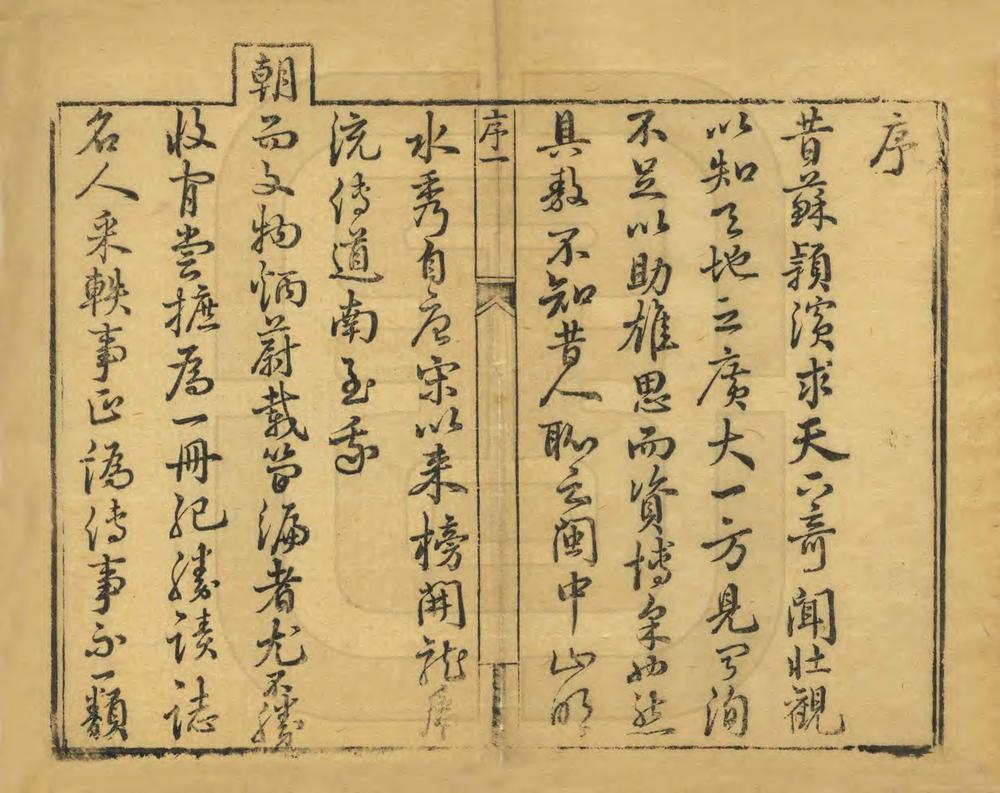 序
昔蘇頴濱求天下奇聞壯觀
以知天地之廣大一方見聞洵
不足以助雄思而資博採然
具敖不知昔人聊云閩中山明
序一
水秀自唐宋以来榜開龍虎
流傳道南至我
朝
而文物炳蔚載簡編者尤不勝
收有嘗摭為一冊紀勝蹟誌
名人采軼事正譌傳事不一類